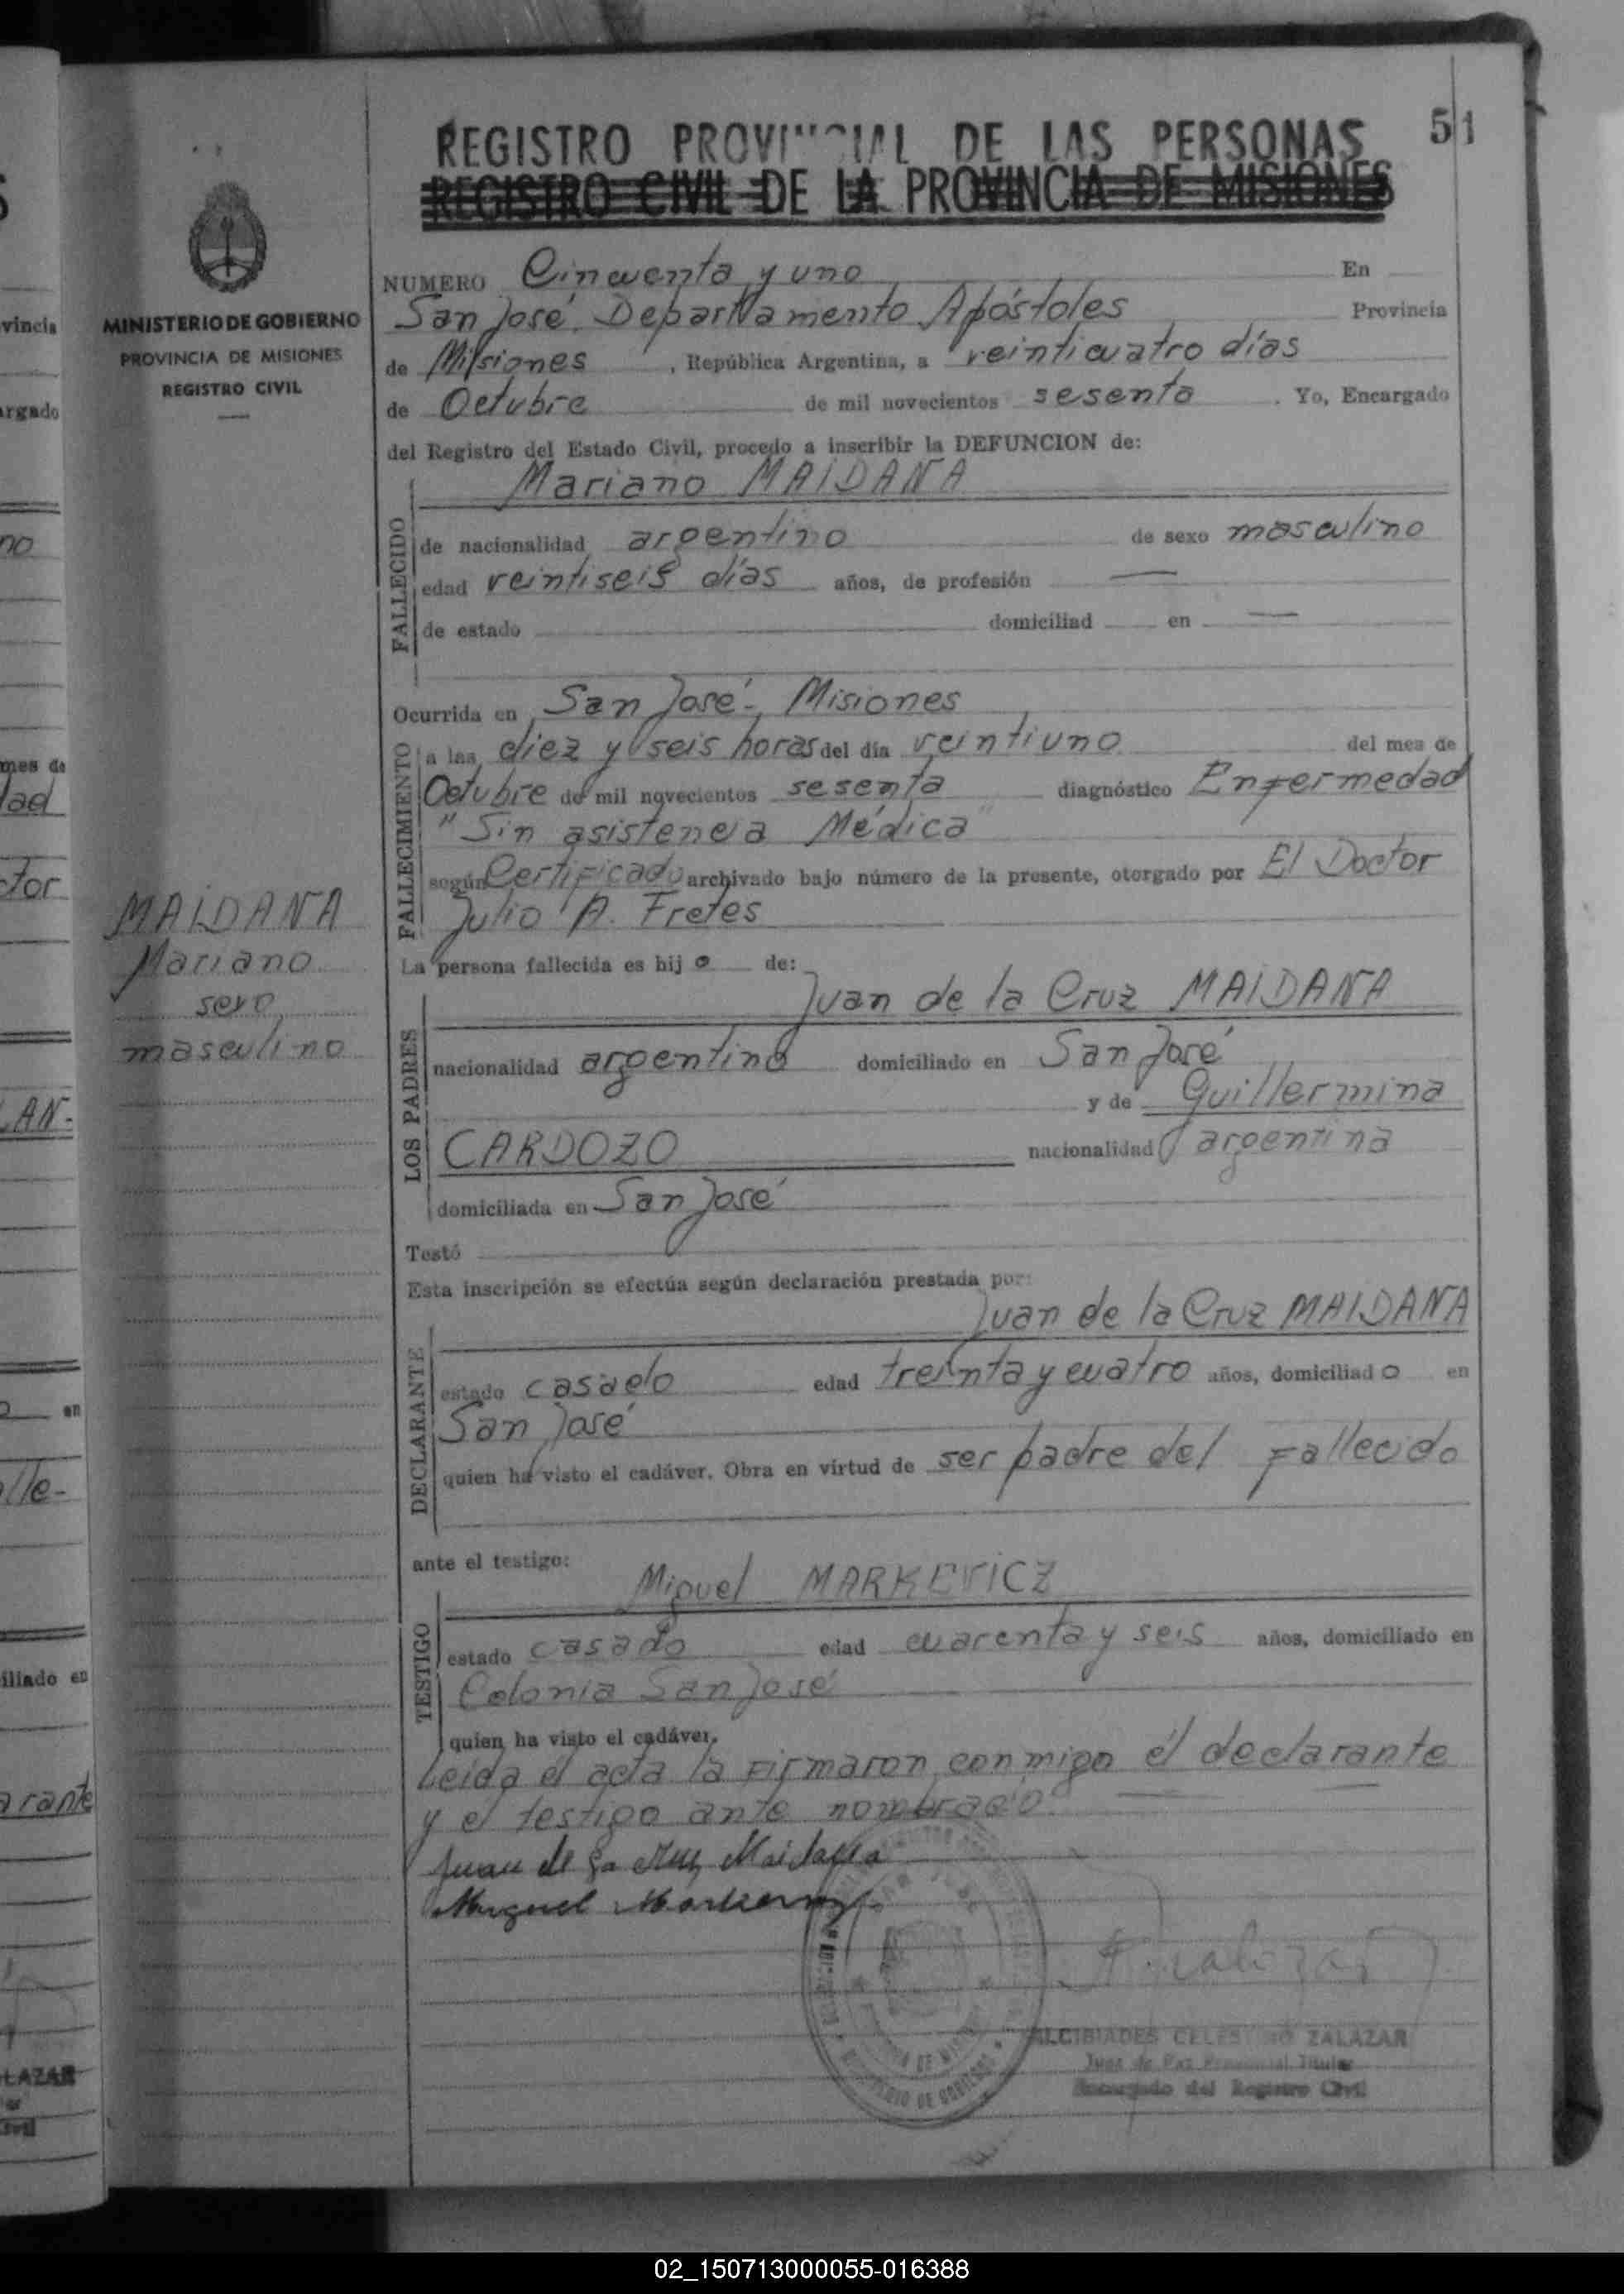 51
REGISTRO PROVINCIAL DE LAS PERSONAS
REGISTRO CIVIL DE LA PROVINCIA DE MISIONES
MINISTERIO DE GOBIERNO
PROVINCIA DE MISIONES
REGISTRO CIVIL
NUMERO Cincuenta y uno En
San José. Departamento Apóstoles Provincia
de Misiones, República Argentina, a veinticuatro días
de Octubre de mil novecientos sesenta. Yo, Encargado
del Registro del Estado Civil, procedo a inscribir la DEFUNCION de:
Mariano MAIDANA
FALLECIDO
de nacionalidad argentino de sexo masculino
edad veintiseis días años, de profesión —
de estado domiciliad en —
FALLECIMIENTO
Ocurrida en San José - Misiones
a las diez y seis horas del día veintiuno del mes de
Octubre de mil novecientos sesenta diagnóstico Enfermedad
"Sin asistencia Médica"
según Certificado archivado bajo número de la presente, otorgado por El Doctor
Julio A. Fretes
MAIDANA
Mariano
sexo
masculino
La persona fallecida es hijo de:
LOS PADRES
Juan de la Cruz MAIDANA
nacionalidad argentino domiciliado en San José
y de Guillermina
CARDOZO nacionalidad argentina
domiciliada en San José
Testó
Esta inscripción se efectúa según declaración prestada por:
DECLARANTE
Juan de la Cruz MAIDANA
estado casado edad treinta y cuatro años, domiciliado en
San José
quien ha visto el cadáver. Obra en virtud de ser padre del fallecido
ante el testigo:
TESTIGO
Miguel MARKEVICZ
estado casado edad cuarenta y seis años, domiciliado en
Colonia San José
quien ha visto el cadáver.
Leída el acta la firmaron conmigo el declarante
y el testigo ante nombrado. —
Juan de la Cruz Maidana
Miguel Markevicz
ALCIBIADES CELESTINO ZALAZAR
Juez de Paz Provincial Titular
Encargado del Registro Civil
MINISTERIO DE GOBIERNO
02_150713000055-016388